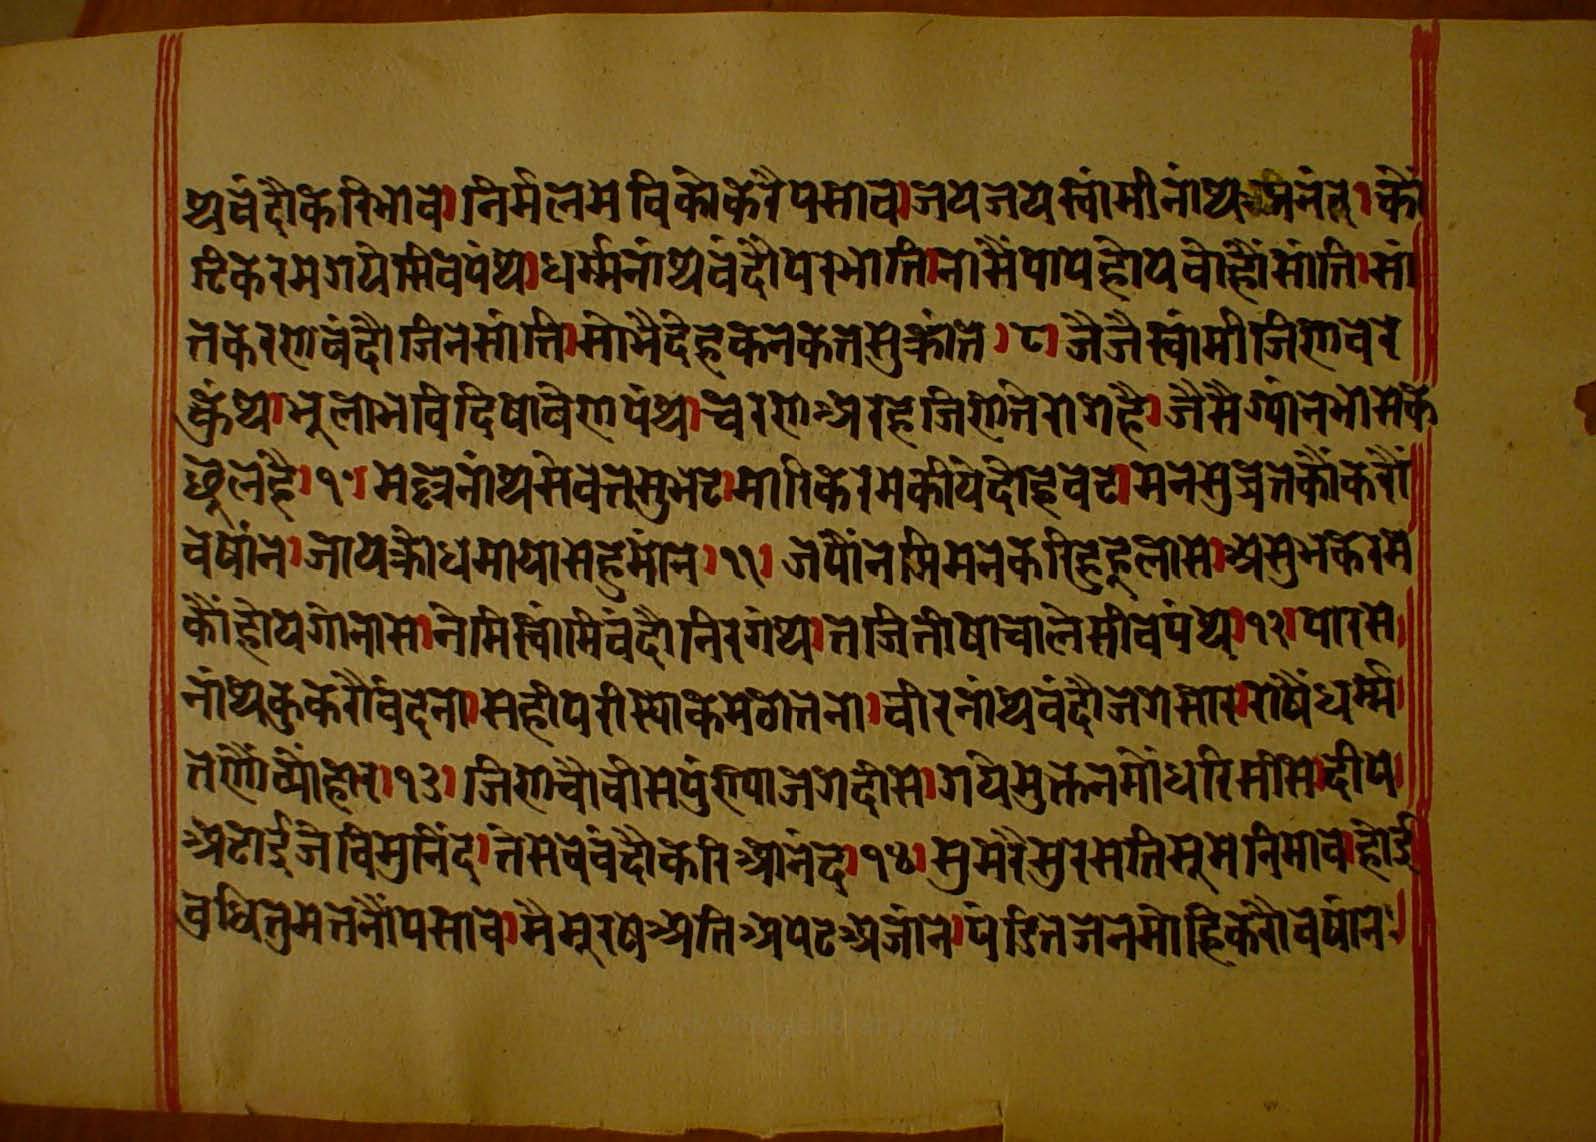 थवंदौकरिभाव। निर्मलभविकाकरैपसाव। जयजयस्वांमीनांथअनंत। कौ
टिकरमगयेसिवपंथ। धर्म्मनांथवंदौंपरभाति। नासैंपापहोयवौहौंसांति। सां
तकरणवंदौजिनसांति। सोभैदेहकनकतसुक्रांत। ८। जैजैस्वांमीजिणवर
कुंथ। भूलाभविदिषावणपंथ। चरणअरहजिणतिरोगहै। जैसैग्यांनभोमक
छूलहै। १०। मल्लनांथसेवतसुभट। मारिकरमकीयेदोहवट। मनसुव्रतकौंकरौं
वषांन। जायक्रोधमायासहुमांन। ११। जपौंनमिमनकरिहुहूलास। असुभकरम
कौंहोयगोनास। नेमिस्वांमिवंदौनिरगंथ। तजितीषाचालेसीवपंथ। १२। पारस
नांथकुकरौवंदना। सहीपरीस्याकमठातना। वीरनांथवंदौजगसार। राषैधर्म्म
तणौंव्यौहार। १३। जिणचौवीसपुंरुषाजगदीस। गयेमुक्तनमौंधरिसीस। दीप
अटाईजेविमुनिंद। तेसबवंदौकरिआनंद। १४। सुमरैसुरसतिसूमनिभाव। होई
बुधितुमतनौंपसाव। मैमूरषअतिअपटअजांन। पंडितजनमोहिकरौवषांन।